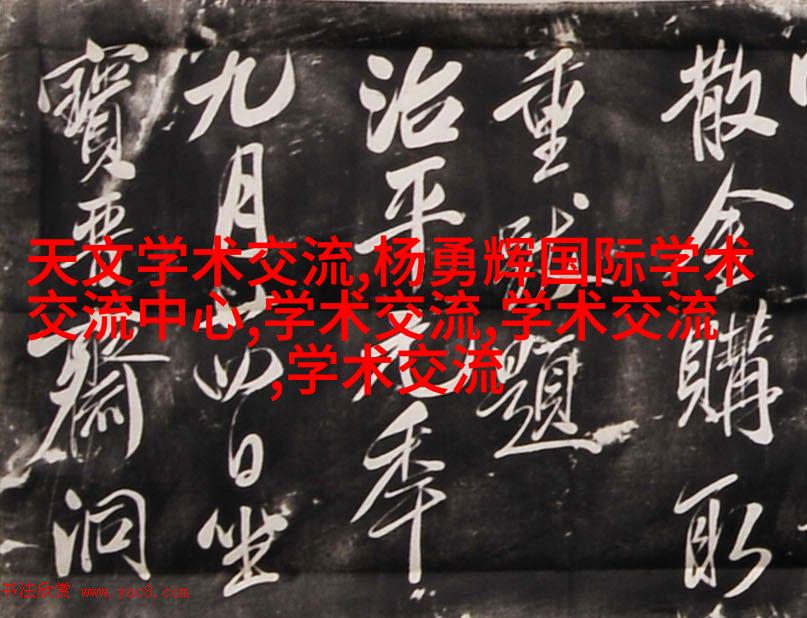 天文学术交流,杨勇辉国际学术
交流中心,学术交流,学术交流
,学术交流
散金購取
重題
治平季
九月日坐
寶晋齋洞
书法欣赏 www.yac8.com